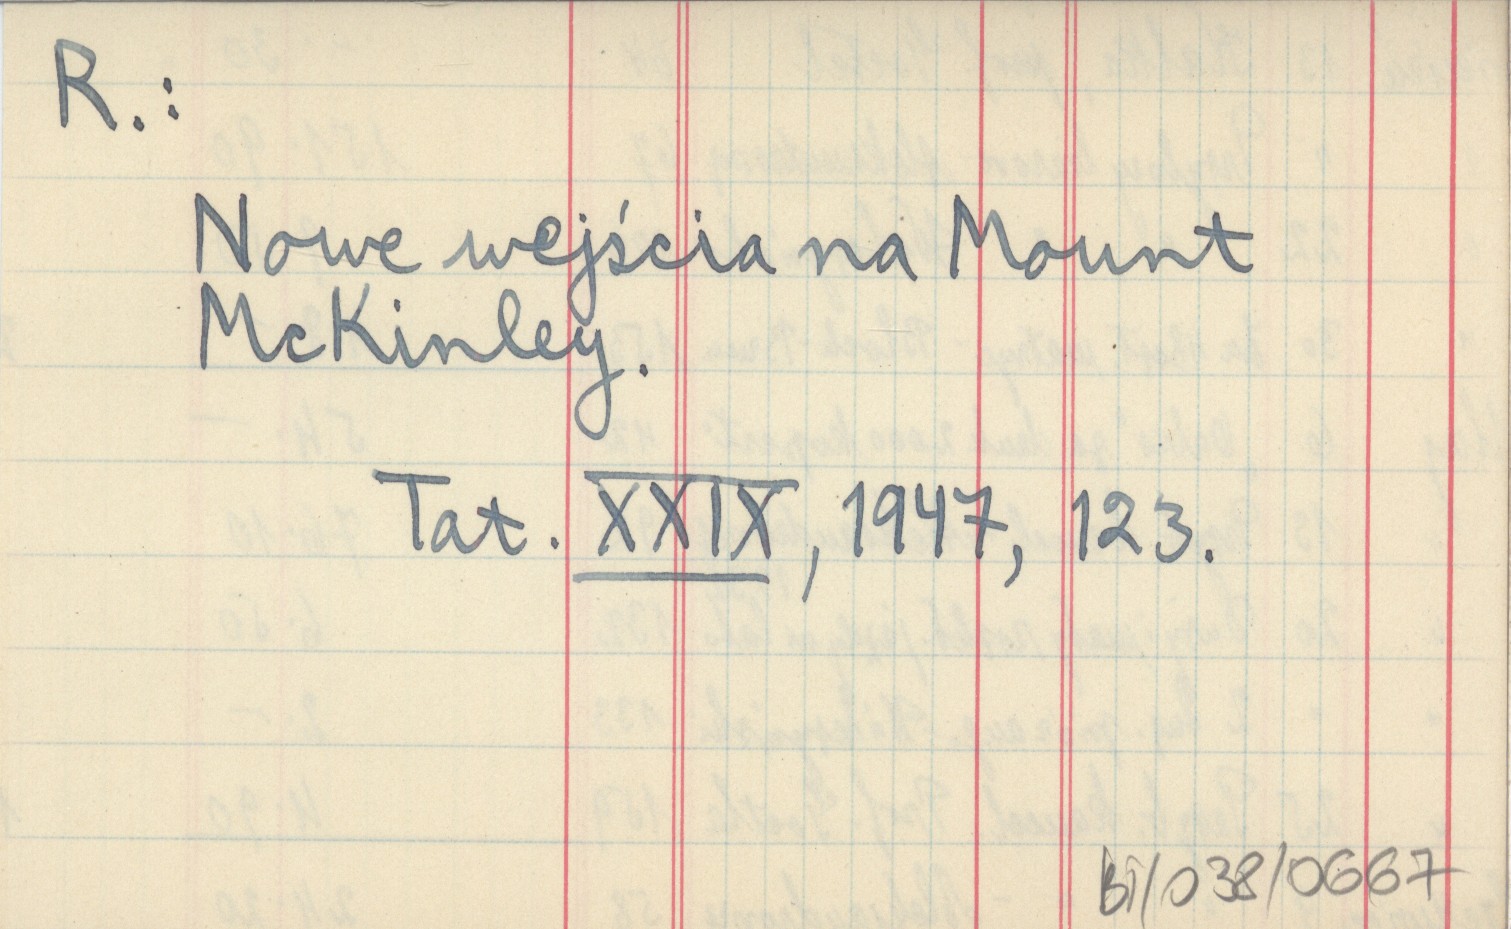 R.:
Nowe wejścia na Mount
McKinley.
Tat. XXIX, 1947, 123.
BT/038/0667